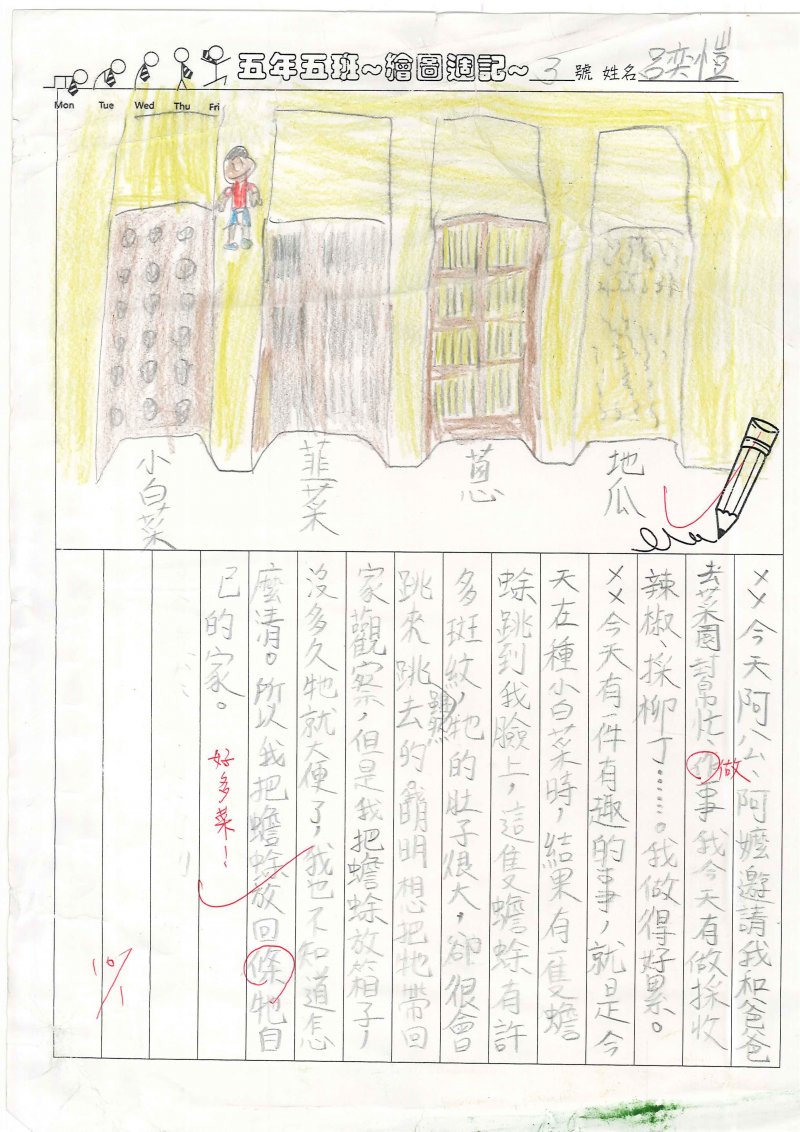 五年五班~繪圖週記~ 3 號 姓名 呂奕愷
Mon Tue Wed Thu Fri
小白菜
韮菜
蔥
地瓜
××今天阿公、阿嬤邀請我和爸爸
去菜園幫忙、作事我今天有做採收
做
辣椒、採柳丁……。我做得好累。
××今天有一件有趣的事,就是今
天在種小白菜時,結果有一隻蟾
蜍跳到我臉上,這隻蟾蜍有許
多斑紋,牠的肚子很大,卻很會
跳來跳去的雖然萌萌明想把牠帶回
家觀察,但是我把蟾蜍放箱子,
沒多久牠就大便了,我也不知道怎
麼清。所以我把蟾蜍放回條牠自
已的家。
好多菜!
10/1